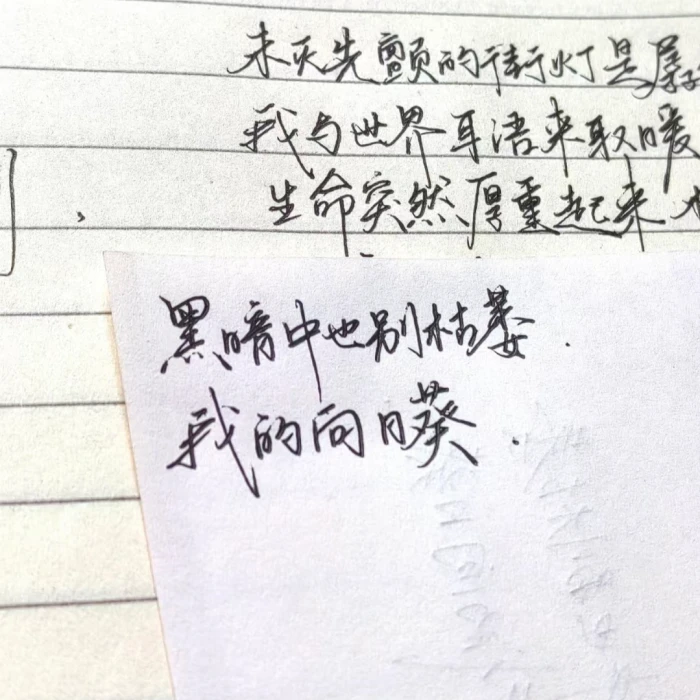 未灭先颤的街灯是孱
我与世界耳语来取暖
生命突然厚重起来
黑暗中也别枯萎.
我的向日葵.